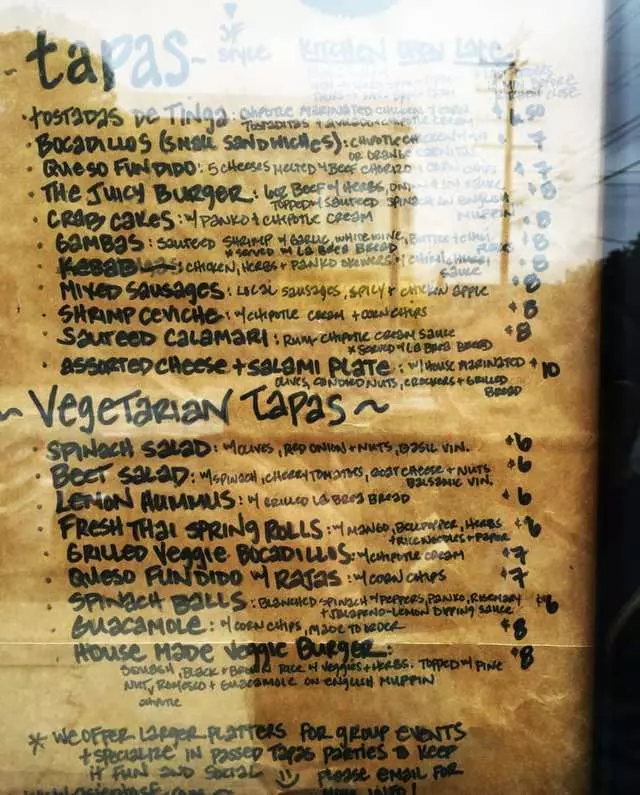 ~ tapas ~ SF STYLE
KITCHEN OPEN LATE
· TOSTADAS DE TINGA: CHIPOTLE MARINATED CHICKEN + CORN 6.50
TOSTADITAS + AVOCADO CHIPOTLE CREAM
· BOCADILLOS (SMALL SANDWICHES): CHIPOTLE CHICKEN 7
OR ORANGE CARNITAS
· QUESO FUNDIDO: 5 CHEESES MELTED W/ BEEF CHORIZO + CORN CHIPS 7
· THE JUICY BURGER: 6oz BEEF W/ HERBS, ONION + SOY SAUCE 8
TOPPED W/ SAUTEED SPINACH ON ENGLISH
MUFFIN
· CRAB CAKES: W/ PANKO + CHIPOTLE CREAM 8
· GAMBAS: SAUTEED SHRIMP W/ GARLIC, WHITE WINE, BUTTER + CHILI FLAKES 8
* SERVED W/ LA BREA BREAD
· KEBAB: CHICKEN, HERBS + PANKO SKEWERS W/ CHILI, HERB 8
SAUCE
· MIXED SAUSAGES: LOCAL SAUSAGES, SPICY + CHICKEN APPLE $8
· SHRIMP CEVICHE: W/ CHIPOTLE CREAM + CORN CHIPS $8
· SAUTEED CALAMARI: RUM-CHIPOTLE CREAM SAUCE $8
* SERVED W/ LA BREA BREAD
· ASSORTED CHEESE + SALAMI PLATE: W/ HOUSE MARINATED $10
OLIVES, CANDIED NUTS, CRACKERS + GRILLED
BREAD
~ VEGETARIAN TAPAS ~
· SPINACH SALAD: W/ OLIVES, RED ONION + NUTS, BASIL VIN. $6
· BEET SALAD: W/ SPINACH, CHERRY TOMATOES, GOAT CHEESE + NUTS $6
BALSAMIC VIN.
· LEMON HUMMUS: W/ GRILLED LA BREA BREAD $6
· FRESH THAI SPRING ROLLS: W/ MANGO, BELL PEPPER, HERBS $6
+ RICE NOODLES + PAPER
· GRILLED VEGGIE BOCADILLOS: W/ CHIPOTLE CREAM $7
· QUESO FUNDIDO W/ RAJAS: W/ CORN CHIPS $7
· SPINACH BALLS: BLANCHED SPINACH W/ PEPPERS, PANKO, ROSEMARY $6
+ JALAPENO-LEMON DIPPING SAUCE
· GUACAMOLE: W/ CORN CHIPS, MADE TO ORDER $8
· HOUSE MADE VEGGIE BURGER: $8
SQUASH, BLACK + BROWN RICE W/ VEGGIES + HERBS. TOPPED W/ PINE
NUT, ROMESCO + GUACAMOLE ON ENGLISH MUFFIN
CHIPOTLE
* WE OFFER LARGER PLATTERS FOR GROUP EVENTS
+ SPECIALIZE IN PASSED TAPAS PARTIES TO KEEP
IT FUN AND SOCIAL PLEASE EMAIL FOR
MORE INFO!